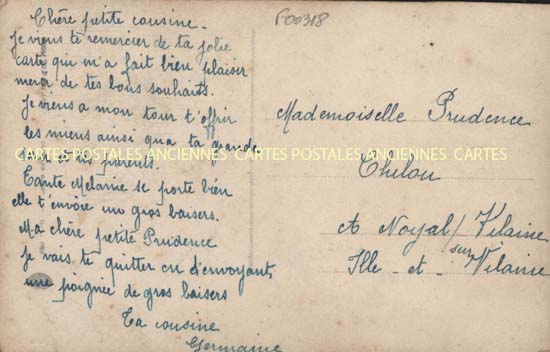 F00318
Chère petite cousine -
Je viens te remercier de ta jolie
carte qui m'a fait bien plaisir
merci de tes bons souhaits.
Je viens a mon tour t'offrir
les miens ainsi qua ta grande
et tes parents.
CARTES POSTALES ANCIENNES CARTES POSTALES ANCIENNES CARTES
Tante Mélanie se porte bien
elle t'envoie un gros baisers.
Ma chère petite Prudence
Je vais te quitter en t'envoyant
une poignée de gros baisers
Ta cousine
Germaine
Mademoiselle Prudence
Chilou
A Noyal / Vilaine
sur
Ille - et - Vilaine